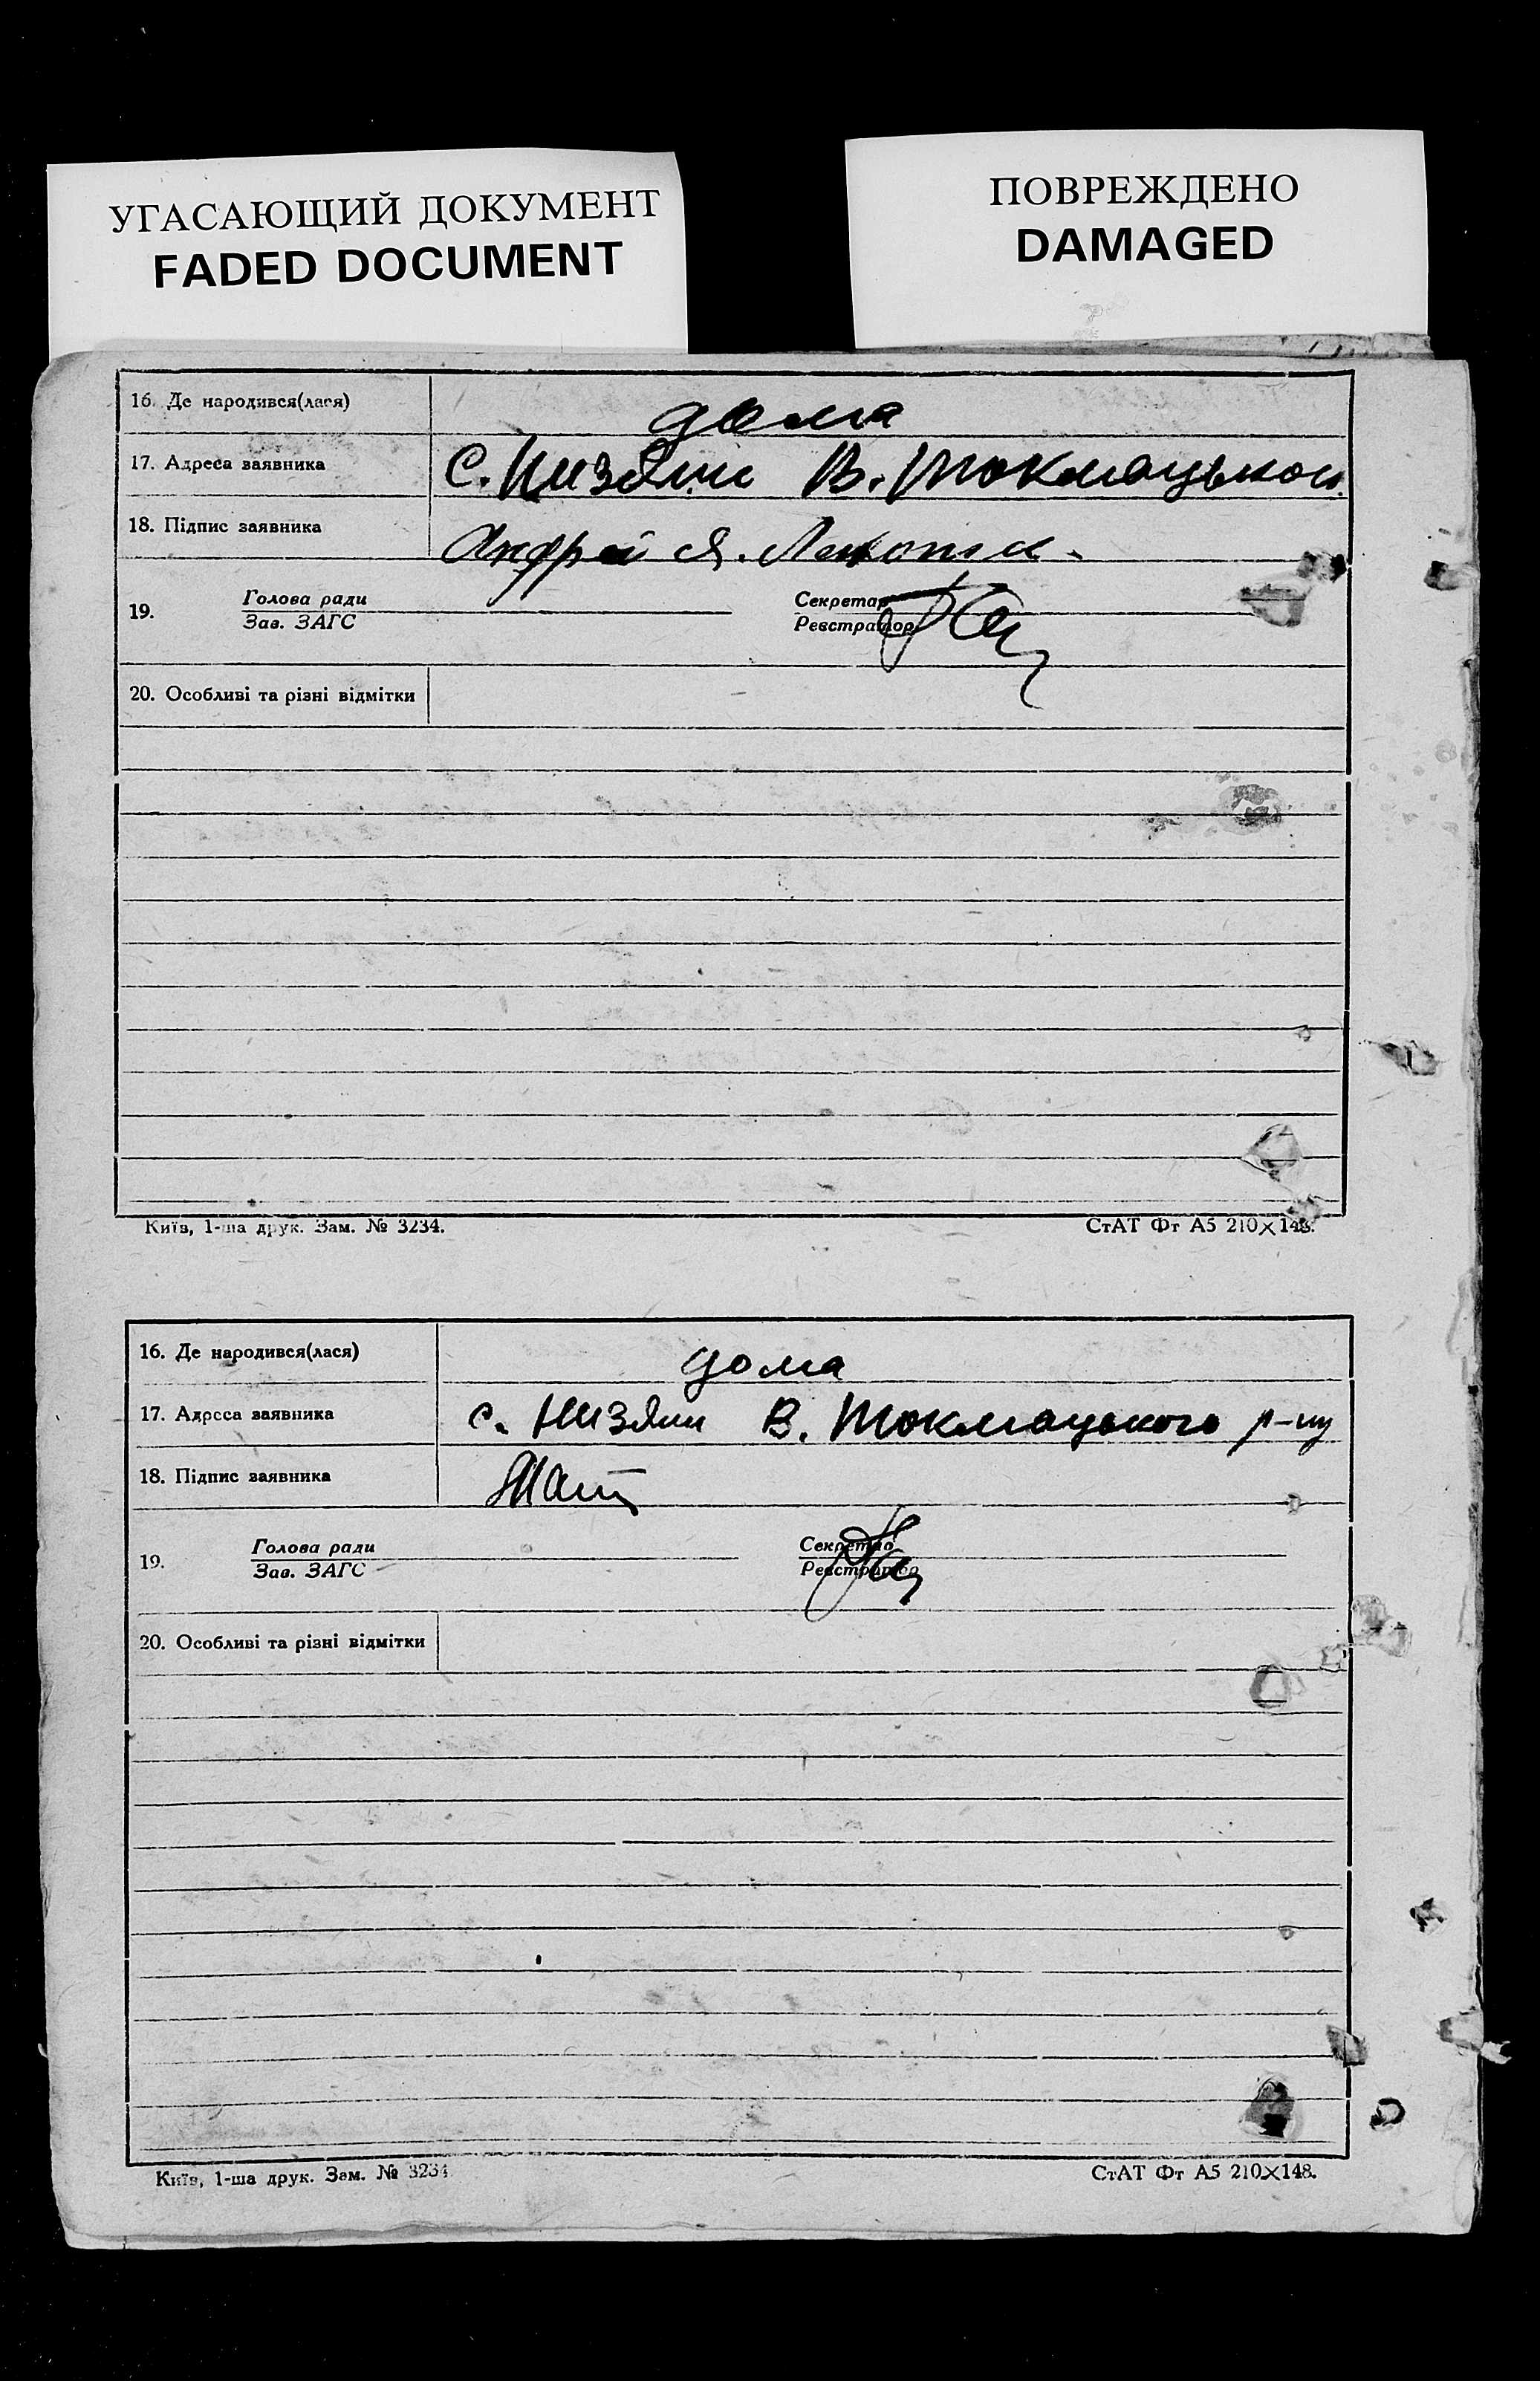 УГАСАЮЩИЙ ДОКУМЕНТ
FADED DOCUMENT
ПОВРЕЖДЕНО
DAMAGED
16. Де народився(лася) дома
17. Адреса заявника с. Низяни В. Токмацьког
18. Підпис заявника Андрей Я.
19. Голова ради Секретар
Зав. ЗАГС Реєстратор
20. Особливі та різні відмітки
Київ, 1-ша друк. Зам. № 3234. СтАТ Фт А5 210×148.
16. Де народився(лася) дома
17. Адреса заявника с. Низяни В. Токмацького р-ну
18. Підпис заявника
19. Голова ради Секретар
Зав. ЗАГС Реєстратор
20. Особливі та різні відмітки
Київ, 1-ша друк. Зам. № 3234 СтАТ Фт А5 210×148.